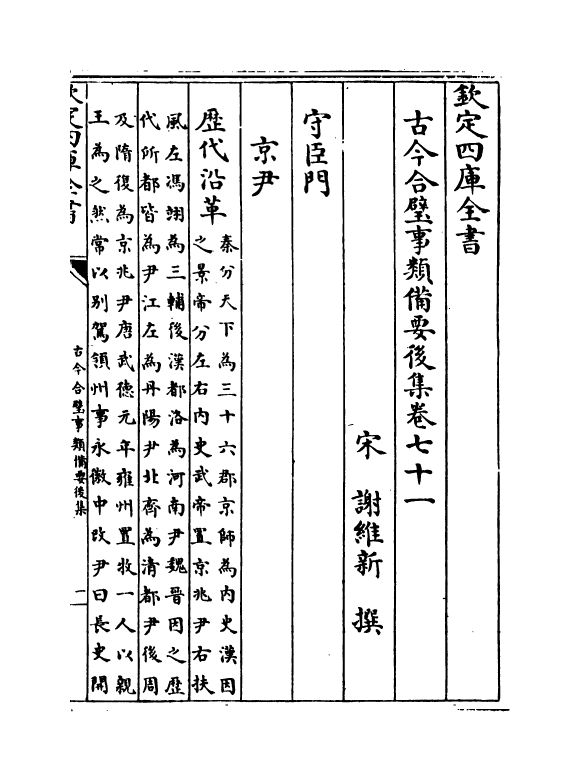 欽定四庫全書
古今合璧事類備要後集卷七十一
宋　謝維新　撰
守臣門
京尹
歷代沿革
秦分天下為三十六郡京師為内史漢因
之景帝分左右内史武帝置京兆尹右扶
風左馮翊為三輔後漢都洛為河南尹魏晉因之歴
代所都皆為尹江左為丹陽尹北齊為清都尹後周
及隋復為京兆尹唐武德元年雍州置牧一人以親
王為之然常以别駕領州事永徽中改尹曰長史開
欽定四庫全書
古今合璧事類備要後集